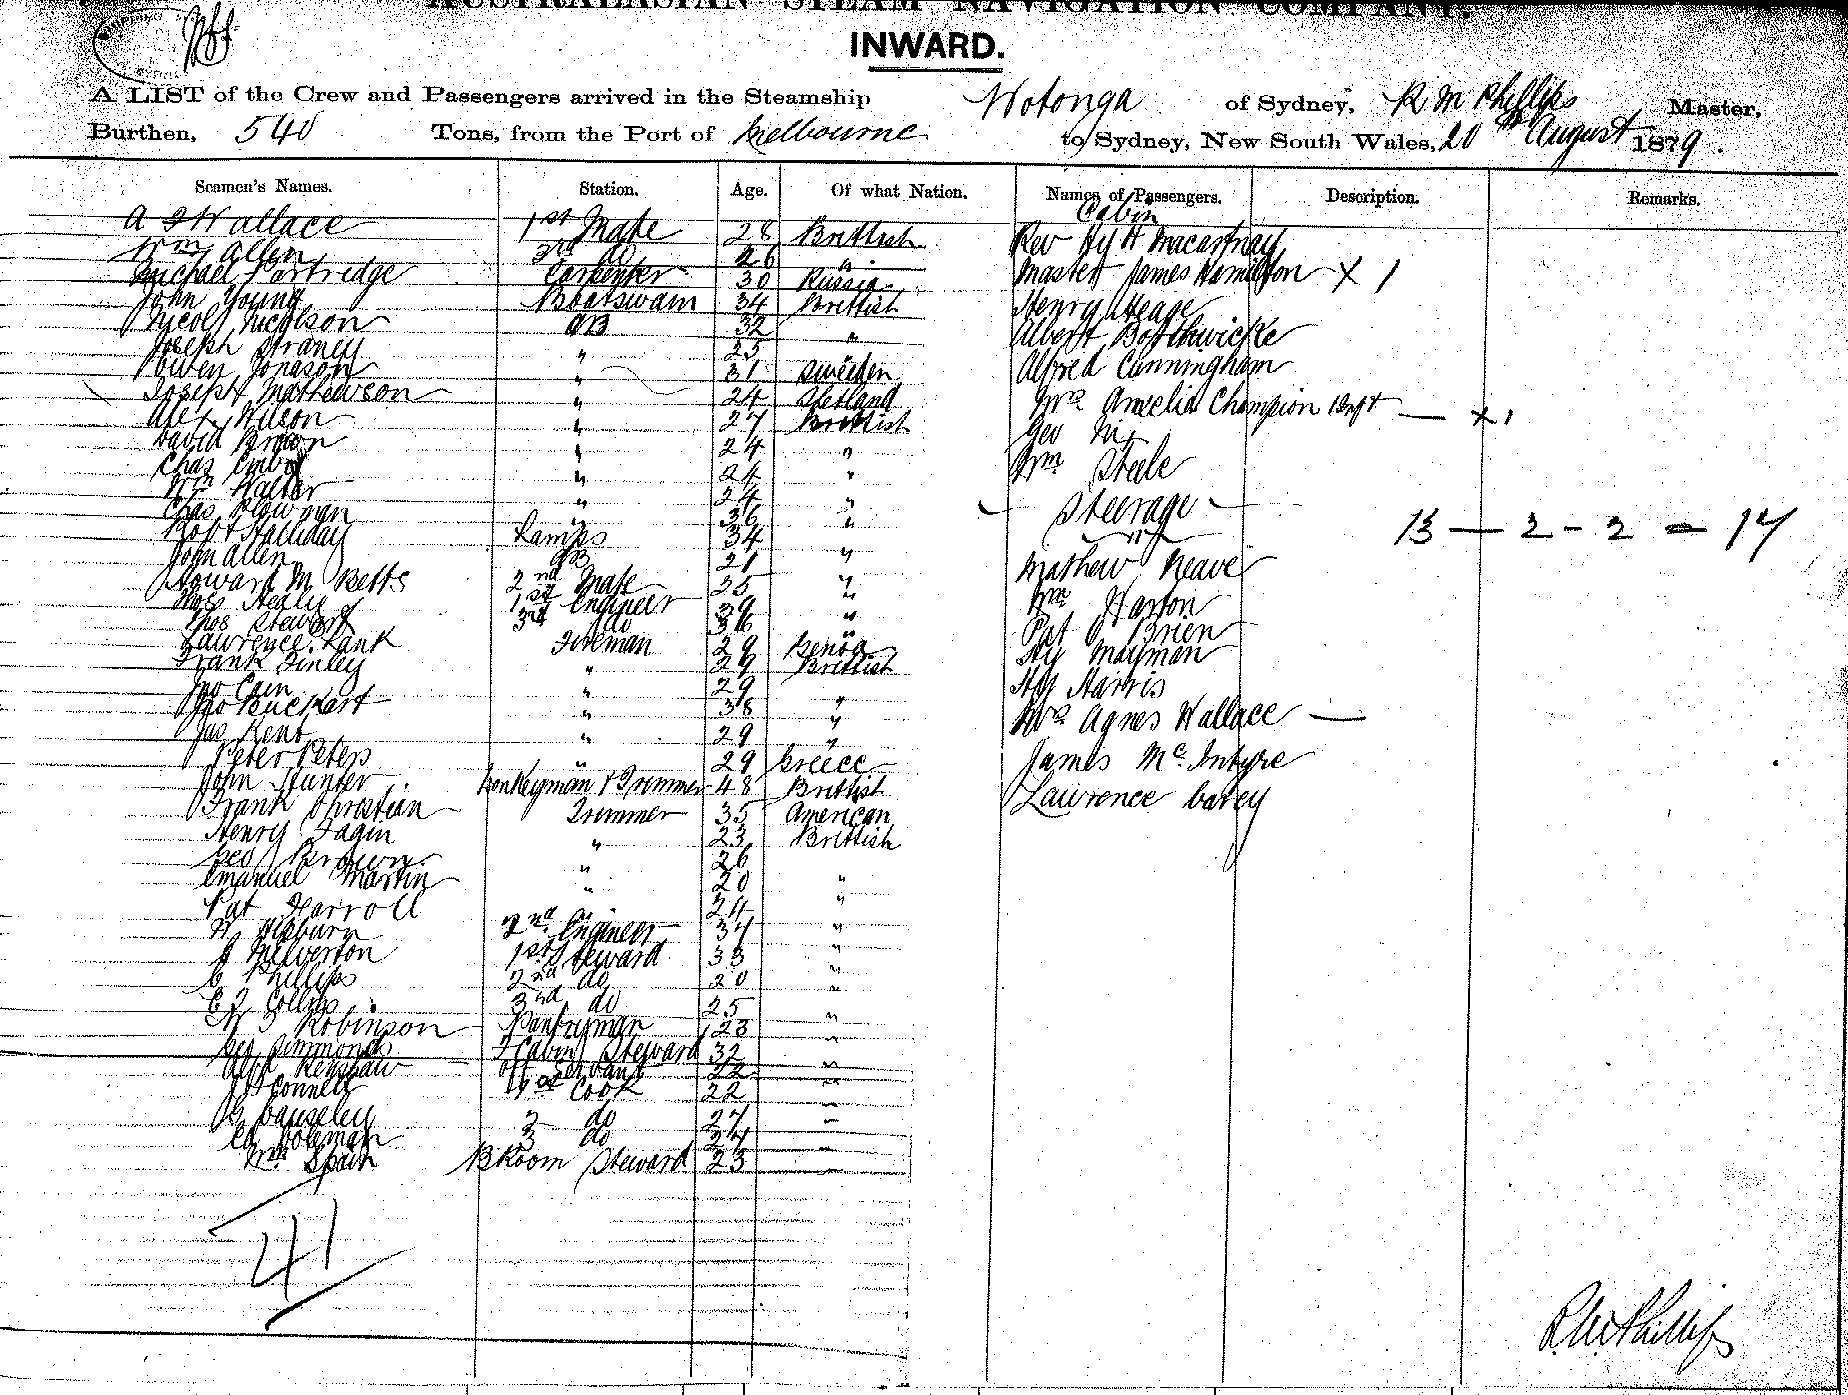 AUSTRALASIAN STEAM NAVIGATION COMPANY.
INWARD.
A LIST of the Crew and Passengers arrived in the Steamship Wotonga of Sydney, R M Phillips Master,
Burthen, 540 Tons, from the Port of Melbourne to Sydney, New South Wales, 20th August 1879.
Seamen's Names. Station. Age. Of what Nation. Names of Passengers. Description. Remarks.
Cabin
A Wallace 1st Mate 28 Brittish Rev Hy H Macartney
Wm Allen 3rd do 26 " Master James Hamilton x 1
Michael Partredge Carpenter 30 Russia Henry Heage
John Young Boatswain 34 Brittish Albert Bothwicke
Nicol Nicolson AB 32 " Alfred Cunningham
Joseph Straney " 25 "
Owen Jonason " 31 Sweden Mrs Amelia Champion 1 Inft — x 1
Joseph Mathewson " 24 Shetland Geo Nix
Alex Wilson " 27 Brittish Wm Steele
David Brown " 24 "
Chas " 24 " Steerage
Wm Walter " 24 " 13 — 2 - 2 = 17
Chas Plowman " 36 "
Robt Halliday Lamps 34 " Mathew Neave
John Allen AB 21 " Wm Harton
Howard M Betts 2nd Mate 35 " Pat O Brien
Thos Healy 1st Engineer 39 " Hy Mayman
Thos Stewart 3rd do 36 " Hy Harris
Lawrence Lank Fireman 29 Genoa Mrs Agnes Wallace —
Frank Finley " 29 Brittish James Mc.Intyre
Jno Cain " 29 " Lawrence Carey
Jno Buckett " 38 "
Jas Kent " 29 "
Peter Peters " 29 Greece
John Hunter Donkeyman & Trimmer 48 Brittish
Frank Christian Trimmer 35 American
Henry Fagin " 23 Brittish
Geo Brown " 26
Emanuel Martin " 20 "
Pat Farroll " 24 "
W 2nd Engineer 34 "
J Milverton 1st Steward 33 "
C Phillips 2nd do 20 "
C J Collins 3rd do 25 "
W S Robinson Pantryman 23 "
Geo Simmonds F Cabin Steward 32 "
Alfd Renshaw Off Servant 22 "
J O'Connell 1st Cook 22 "
G Causeley 2 do 27 "
Ed Coleman 3 do 24 "
Wm Spain B Room Steward 23 "
41
R. M. Phillips